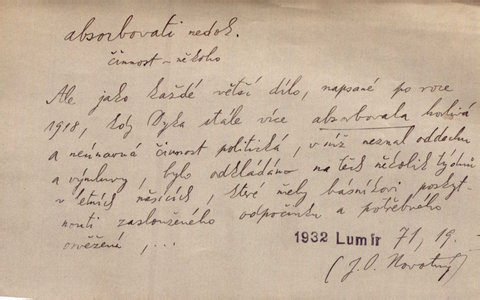 absorbovati nedok.
činnost ~ někoho
Ale jako každé větší dílo, napsané po roce
1918, kdy Dyka stále více absorbovala horlivá
a neúnavná činnost politická, v níž neznal oddechu
a výmluvy, bylo odkládáno na těch několik týdnů
v letních měsících, které měly básníkovi poskyt-
nouti zaslouženého odpočinku a potřebného
osvěžení, ...
1932 Lumír 71, 19.
(J. O. Novotný)